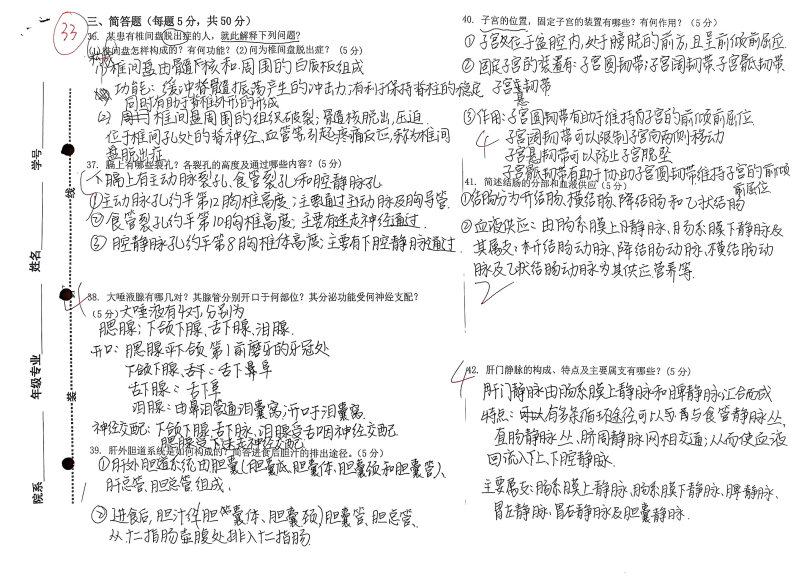 33
三、简答题（每题5分，共50分）
36. 某患有椎间盘脱出症的人，就此解释下列问题？
(1)椎间盘怎样构成的？有何功能？(2)何为椎间盘脱出症？（5分）
椎间盘由髓核和周围的白质板组成
功能：缓冲脊髓振荡产生的冲击力；有利于保持脊柱的稳定
同时有助于脊椎外形的形成
椎间盘周围的组织破裂；髓核脱出,压迫
位于椎间孔处的脊神经、血管等引起疼痛反应,称为椎间
盘脱出症
37. 膈上有哪些裂孔？各裂孔的高度及通过哪些内容？（5分）
膈上有主动脉裂孔、食管裂孔和腔静脉孔
①主动脉孔约平第12胸椎高度；主要通过主动脉及胸导管.
②食管裂孔约平第10胸椎高度；主要有迷走神经通过.
③腔静脉孔约平第8胸椎体高度；主要有下腔静脉通过.
38. 大唾液腺有哪几对？其腺管分别开口于何部位？其分泌功能受何神经支配？
（5分）大唾液有4对,分别为
腮腺；下颌下腺、舌下腺、泪腺.
开口：腮腺平下颌第1前磨牙的牙冠处
下颌下腺、舌下：舌下阜
舌下腺：舌下阜
泪腺：由鼻泪管通泪囊窝,开口于泪囊窝.
神经交配：下颌下腺舌下腺、泪腺受舌咽神经交配
腮腺受下迷走神经交配
39. 肝外胆道系统是如何构成的？简答进食后胆汁的排出途径。（5分）
①肝外胆道系统由胆囊(胆囊底、胆囊体、胆囊颈和胆囊管)、
肝总管,胆总管组成.
②进食后,胆汁经胆囊体、胆囊颈)胆囊管、胆总管、
从十二指肠壶腹处排入十二指肠
40. 子宫的位置，固定子宫的装置有哪些？有何作用？（5分）
①子宫位于盆腔内,处于膀胱的前方,且呈前倾前屈位.
②固定子宫的装置有：子宫圆韧带；子宫阔韧带子宫骶韧带
子宫悬韧带
③作用：子宫圆韧带有助于维持子宫的前倾前屈位
4
子宫阔韧带可以限制子宫向两侧移动
子宫悬韧带可以防止子宫脱坠
子宫骶韧带有助于协助子宫圆韧带,维持子宫的前倾
前屈位
41. 简述结肠的分部和血液供应（5分）
①结肠分为升结肠、横结肠、降结肠和乙状结肠
②血液供应：由肠系膜上静脉、肠系膜下静脉及
其属支：升结肠动脉、降结肠动脉、横结肠动
脉及乙状结肠动脉为其供应营养等.
2
42. 肝门静脉的构成、特点及主要属支有哪些？（5分）
4
肝门静脉由肠系膜上静脉和脾静脉汇合而成
特点：有多条循环途径可以与食管静脉丛,
直肠静脉丛、脐周静脉网相交通；从而使血液
回流入上下腔静脉.
主要属支：肠系膜上静脉、肠系膜下静脉、脾静脉、
胃左静脉、胃右静脉及胆囊静脉.
学号
姓名
年级专业
院系
线
订
装